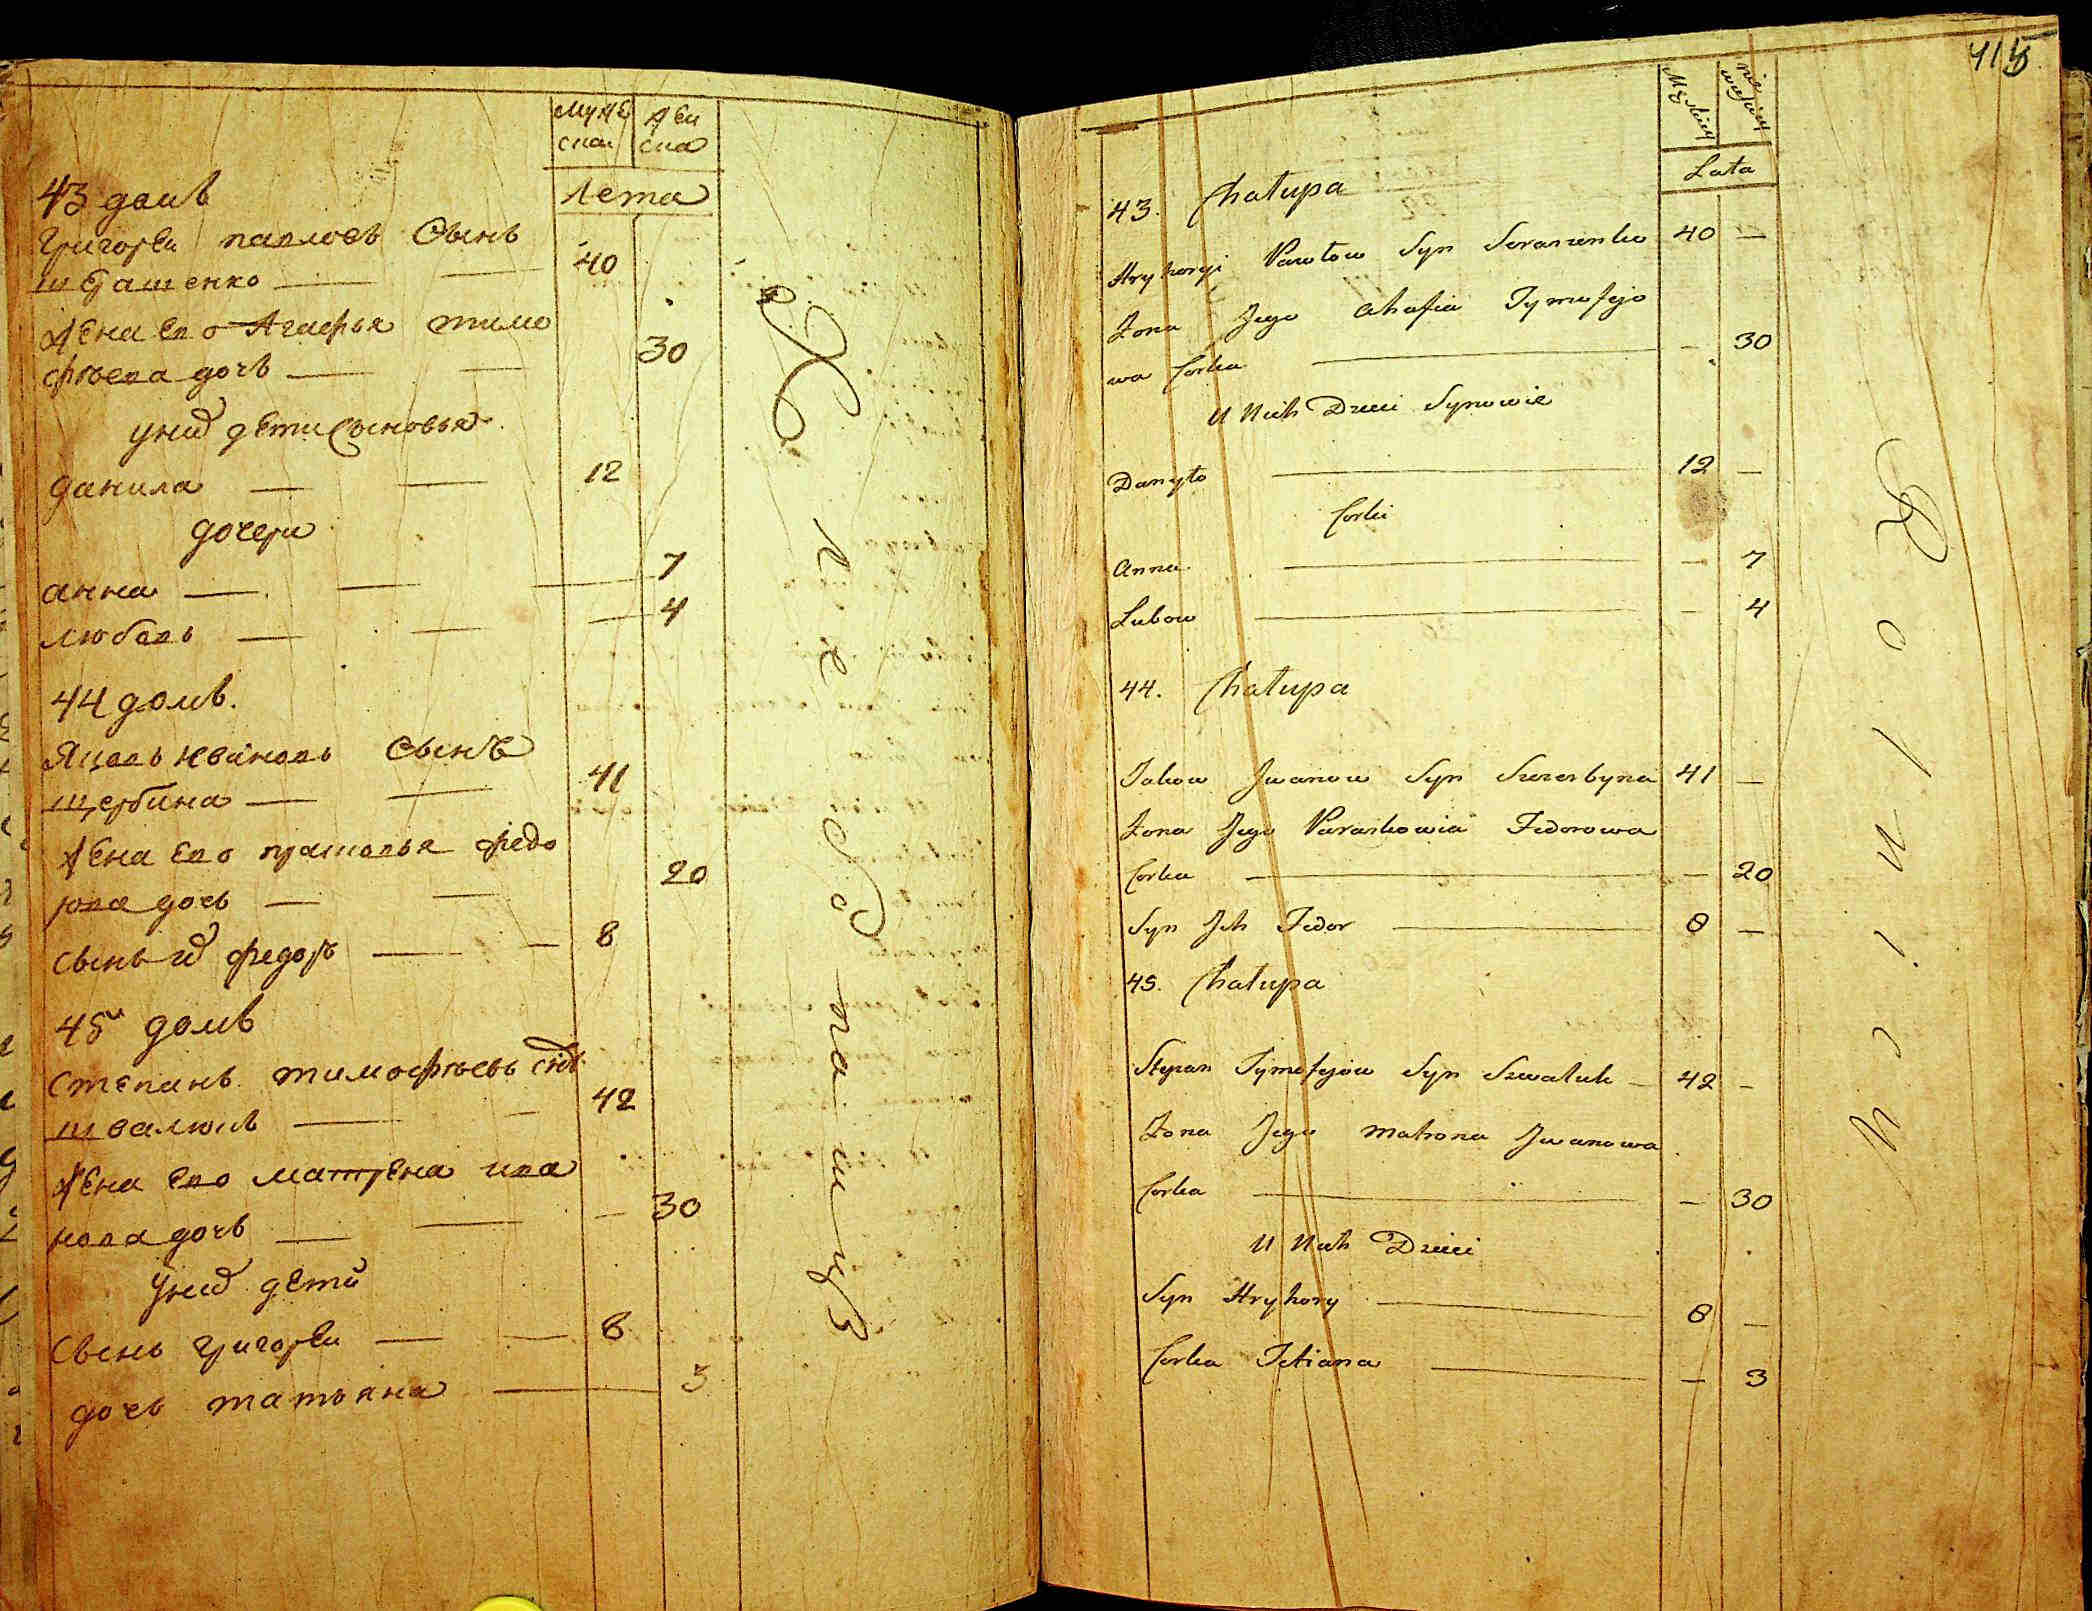 муже
ска
жен
ска
Лета
43 домъ
Григореи павловъ Сынъ
шерашенко 40
Жена ево Агафья тимо
фѣева дочь 30
у них дети Сыновья
данила 12
дочери
анна 7
любовь 4
44 домъ.
Яковъ Ивановъ Сынъ
щербина 41
Жена ево прасковья федо
рова дочь 20
сынъ их федоръ 8
45й домъ
степанъ тимофѣевъ снъ
швалюкъ 42
Жена ево матрена ива
нова дочь 30
у них дети
Сынъ григореи 8
дочь татьяна 3
Хлебопашцъ
415
Męskiey
niewieściey
Lata
43. Chałupa
Hryhoryi Pawłow Syn 40 —
Żona Jego Ahafia Tymofyjo
wa Corka — 30
U Nich Dzieci Synowie
Danyło 12 —
Corki
Anna — 7
Lubow — 4
44. Chałupa
Jakow Jwanow Syn Szczerbyna 41 —
Żona Jego Paraskowia Fedorowa
Corka — 20
Syn Jch Fedor 8 —
45. Chałupa
Stepan Tymofyiow Syn Szwaluk 42 —
Żona Jego Matrona Jwanowa
Corka — 30
U Nich Dzieci
Syn Hryhory 8 —
Corka Tetiana — 3
Rolnicy